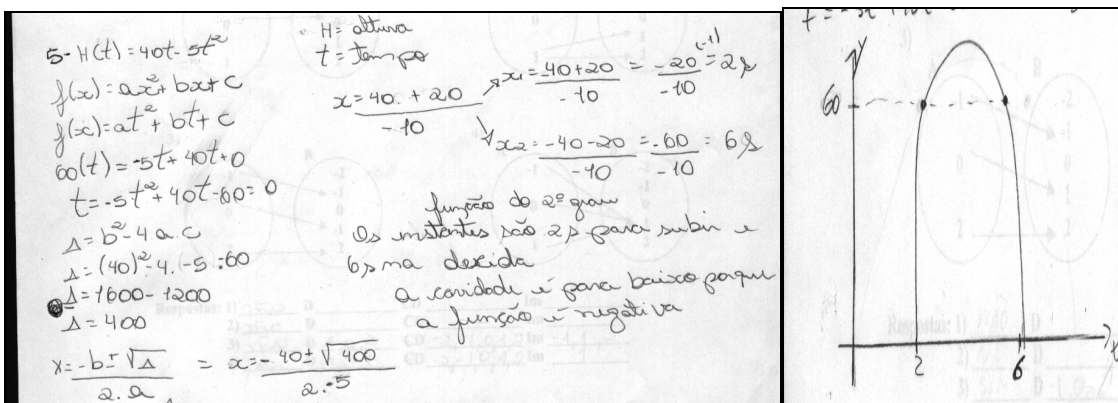 5- H(t) = 40t - 5t²
f(x) = ax² + bx + c
f(x) = at² + bt + c
60(t) = -5t + 40t + 0
t = -5t² + 40t - 60 = 0
Δ = b² - 4 a . c
Δ = (40)² - 4. (-5 . 60
Δ = 1600 - 1200
Δ = 400
x = -b ± √Δ / 2 . a = x = -40 ± √400 / 2 . -5
H = altura
t = tempo
x = 40 + 20 / -10
x1 = -40 + 20 / -10 = -20 / -10 (-1) = 2 s
x2 = -40 - 20 / -10 = -60 / -10 = 6 s
função do 2º grau
Os instantes são 2s para subir e
6s na decida
a cavidade é para baixo porque
a função é negativa
y
60
2
6
x